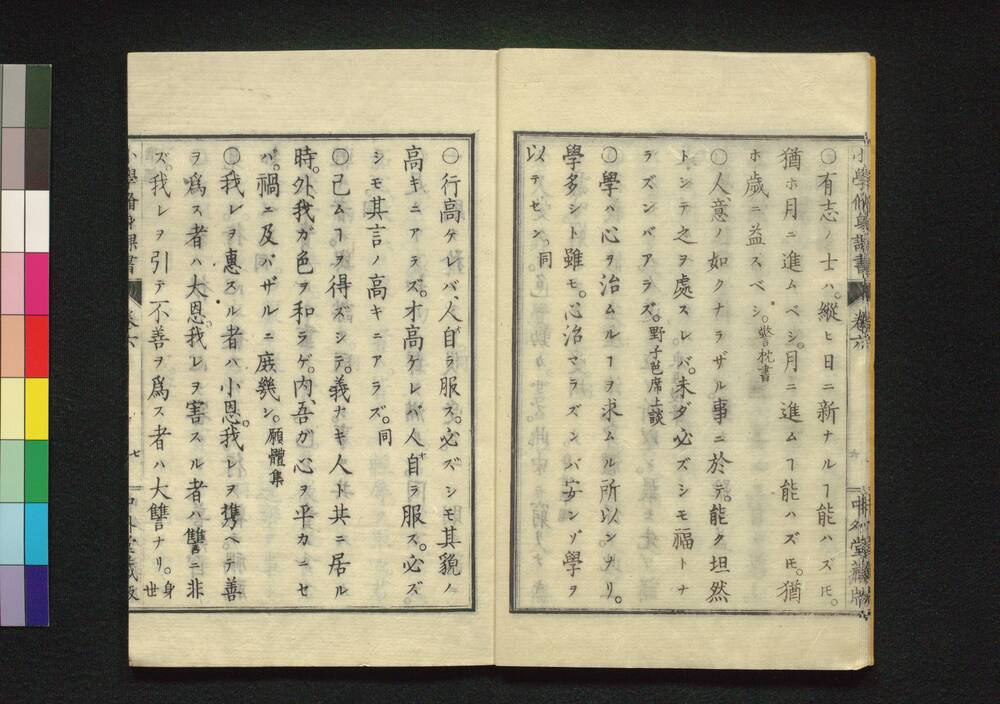 〇有志ノ士ハ。縱ヒ日ニ新ナルヿ能ハズㇳモ。
猶ホ月ニ進ムベシ。月ニ進ムヿ能ハズㇳモ。猶
ホ歳ニ益スベシ。警枕書
〇人、意ノ如クナラザル事ニ於テ。能ク坦然
トシテ之ヲ處スレバ。未ダ必ズシモ福トナ
ラズンバアラズ。野子芭席上談
〇學ハ心ヲ治ムルヿヲ求ムル所以ンナリ。
學多シト雖モ。心治マラズンバ安ンゾ學ヲ
以テセン。同
〇行高ケレバ、人自ラ服ス。必ズシモ其貌ノ
高キニアラズ。才高ケレバ人自ラ服ス。必ズ
シモ其言ノ高キニアラズ。同
〇己ムヿヲ得ズシテ。義ナキ人ト共ニ居ル
時。外、我ガ色ヲ和ラゲ。内、吾ガ心ヲ平カニセ
バ。禍ニ及バザルニ庶幾シ。願體集
〇我レヲ惠スル者ハ小恩。我レヲ携ヘテ善
ヲ爲ス者ハ大恩。我レヲ害スル者ハ讐ニ非
ズ。我レヲ引テ不善ヲ爲ス者ハ大讐ナリ。身世